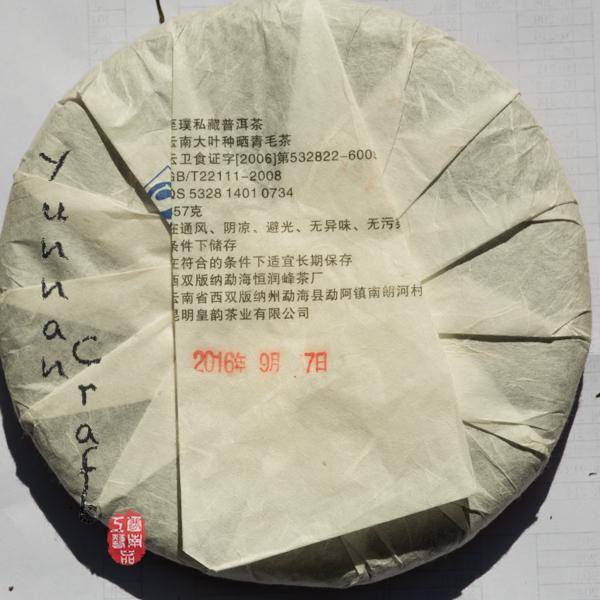 至璞私藏普洱茶
云南大叶种晒青毛茶
云卫食证字[2006]第532822-600
GB/T22111-2008
QS 5328 1401 0734
357克
在通风、阴凉、避光、无异味、无污
条件下储存
在符合的条件下适宜长期保存
西双版纳勐海恒润峰茶厂
云南省西双版纳州勐海县勐阿镇南朗河村
昆明皇韵茶业有限公司
2016年 9月 7日
Yunnan
Craft